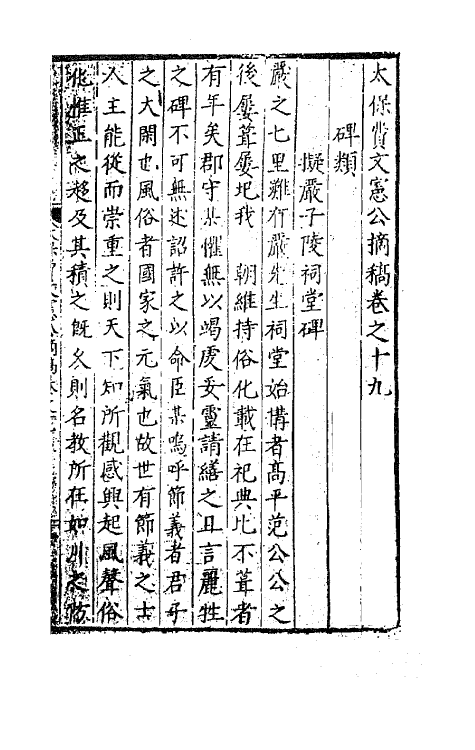 太保費文憲公摘稿卷之十九
碑類
擬嚴子陵祠堂碑
嚴之七里難有嚴先生祠堂始構者高平范公公之
後屢葺屢圮我 朝維持俗化載在祀典比不葺者
有年矣郡守某懼無以竭虔妥靈請繕之且言麗牲
之碑不可無述詔許之以命臣某嗚呼節義者君子
之大閑也風俗者國家之元氣也故世有節義之士
人主能從而崇重之則天下知所觀感興起風聲俗
化惟正之趨及其積之既久則名教所在如川之防